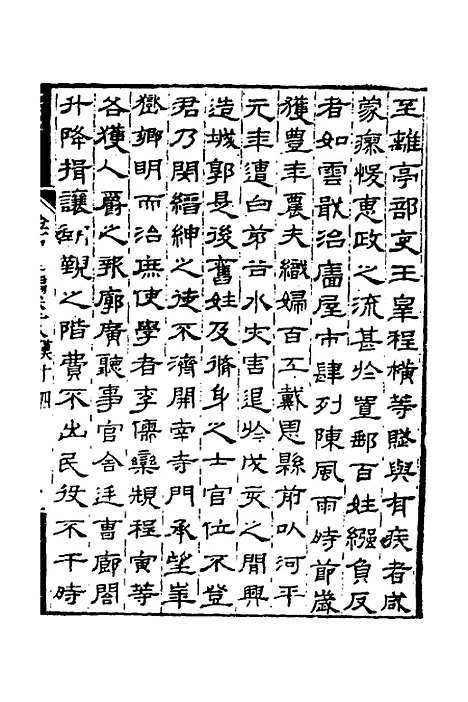 至離亭部吏王皐程橫等賦與有疾者咸
蒙瘳悛惠政之流甚於置郵百姓繦負反
者如雲戢治廧屋市肆列陳風雨時節歲
獲豐年農夫織婦百工戴恩縣前以河平
元年遭白茅谷水灾害退於戌亥之閒興
造城郭是後舊姓及脩身之士官位不登
君乃閔縉紳之徒不濟開南寺門承望華
嶽鄉明而治庶使學者李儒欒規程寅等
各獲人爵之報廓廣聽事官舍廷曹廊閣
升降揖讓朝覲之階費不出民役不干時
卷十八漢十四